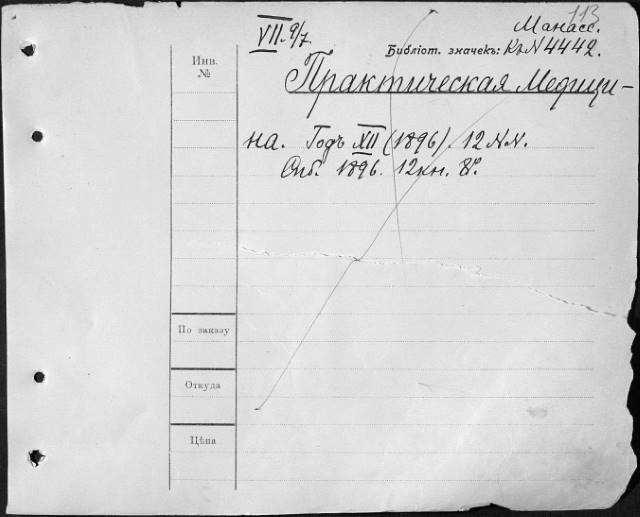 113
Манасс.
VII.9/7
Библіот. значекъ: Къ N 4442.
Инв.
№
Практическая Медици-
на. Годъ XII (1896). 12 N.N.
Спб. 1896. 12 кн. 8°.
По заказу
Откуда
Цѣна